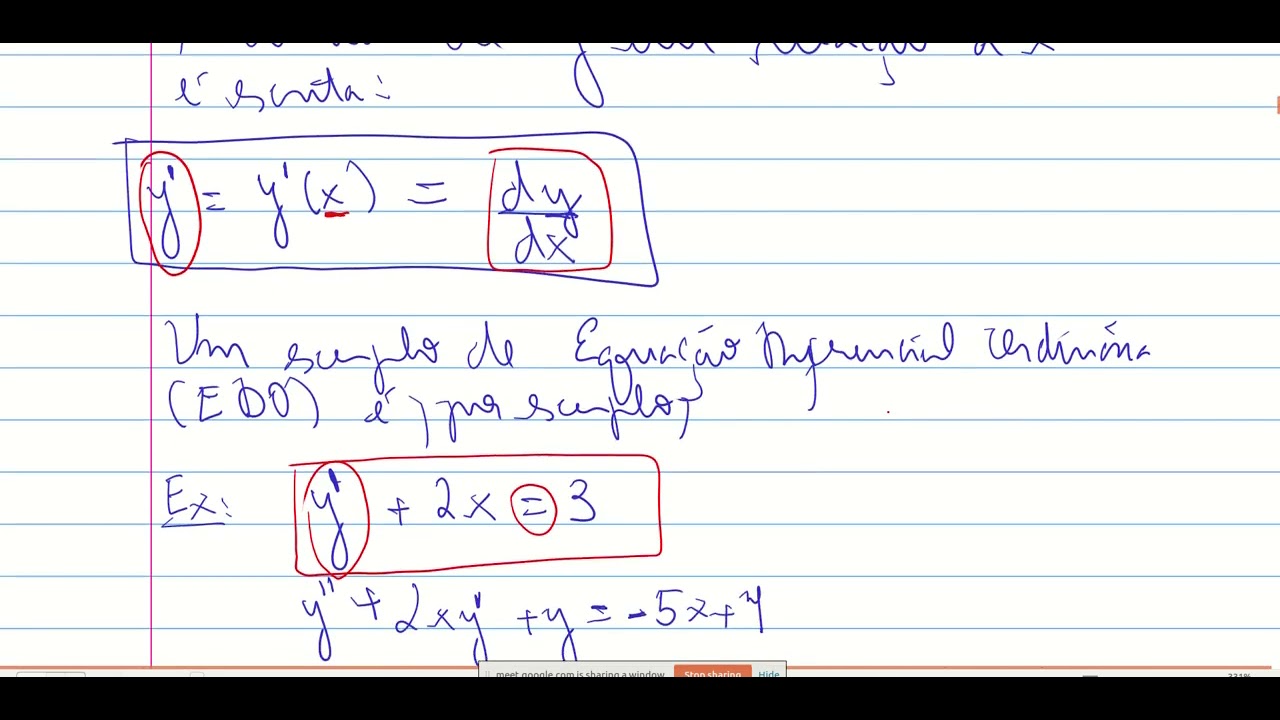 em relação a x
é escrita:
y' = y'(x) = dy/dx
Um exemplo de Equação Diferencial Ordinária
(EDO) é, por exemplo,
Ex: y' + 2x = 3
y'' + 2xy' + y = -5x+4
meet.google.com is sharing a window Stop sharing Hide
331%